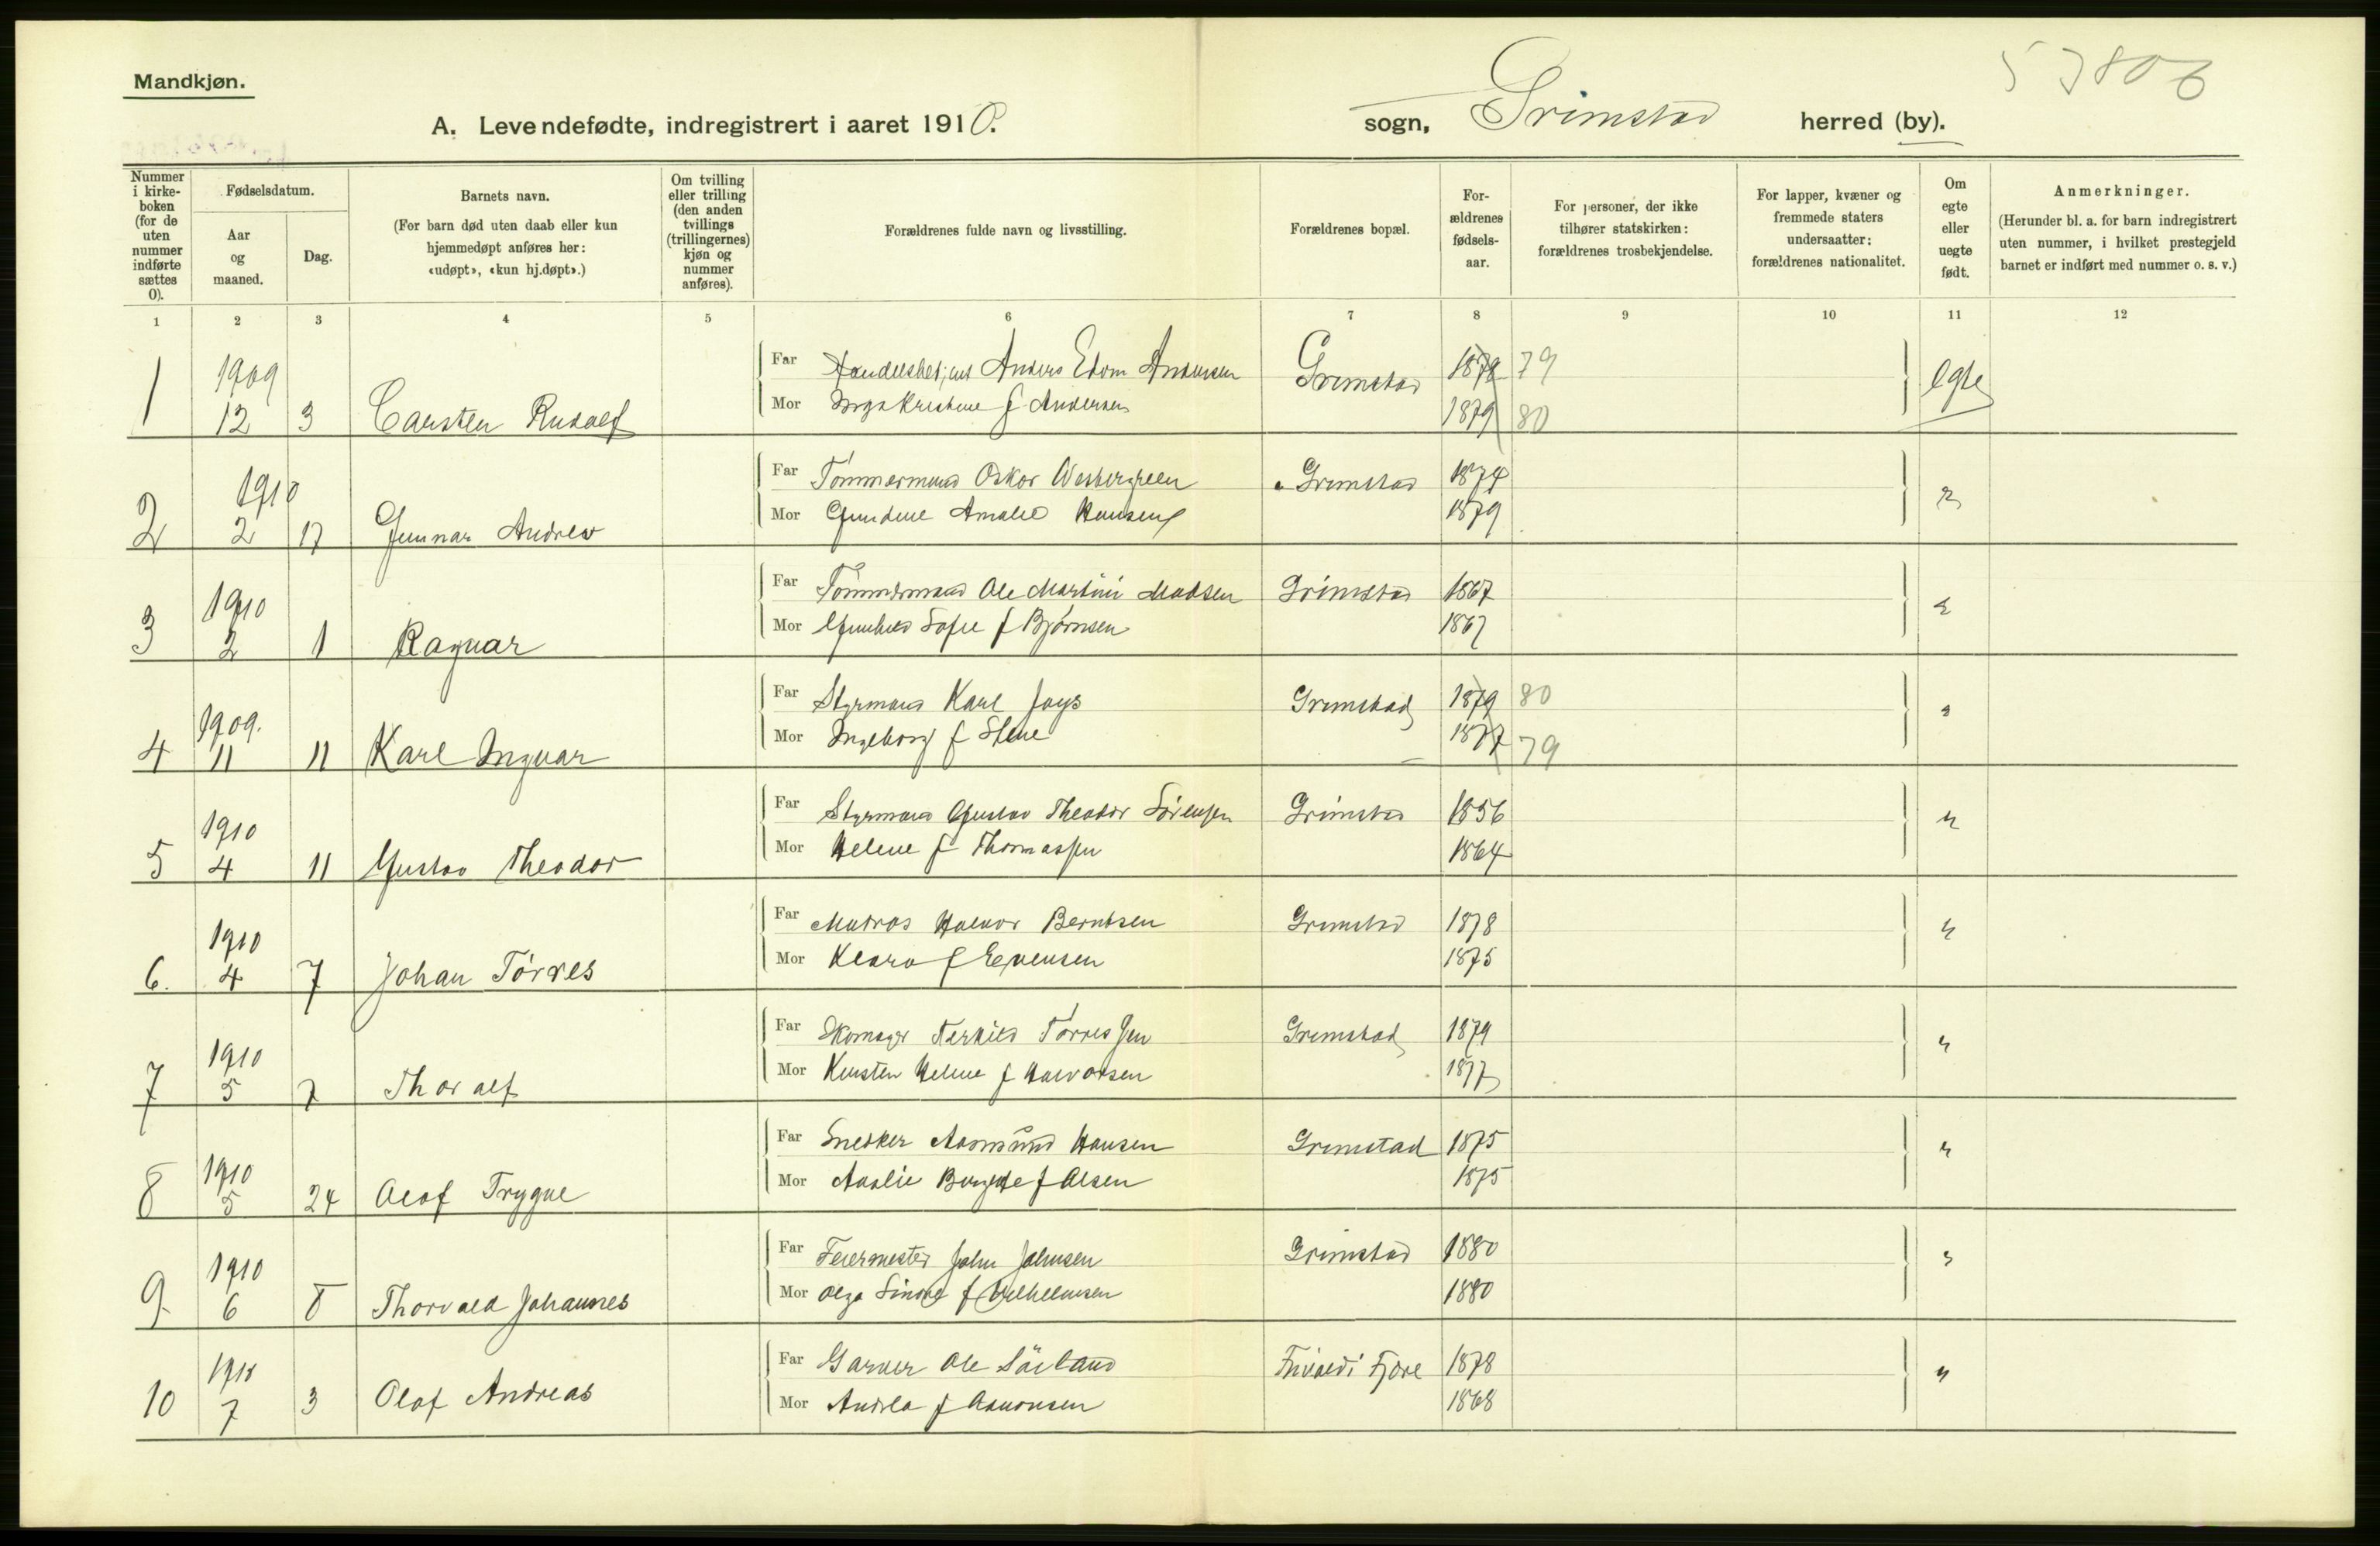 Mandkjøn.
53806
A. Levendefødte, indregistrert i aaret 1910. sogn, Grimstad herred (by).
Nummer i kirke-boken (for de uten nummer indførte sættes 0).
Fødselsdatum.
Aar og maaned.
Dag.
Barnets navn.
(For barn død uten daab eller kun hjemmedøpt anføres her: «udøpt», «kun hj.døpt».)
Om tvilling eller trilling (den anden tvillings (trillingernes) kjøn og nummer anføres).
Forældrenes fulde navn og livsstilling.
Forældrenes bopæl.
For-ældrenes fødsels-aar.
For personer, der ikke tilhører statskirken: forældrenes trosbekjendelse.
For lapper, kvæner og fremmede staters undersaatter: forældrenes nationalitet.
Om egte eller uegte født.
Anmerkninger.
(Herunder bl. a. for barn indregistrert uten nummer, i hvilket prestegjeld barnet er indført med nummer o. s. v.)
1 2 3 4 5 6 7 8 9 10 11 12
1 1909 12 3 Carsten Rudolf
Far Anders Edvin Andersen Grimstad 1878 79 egte
Mor Inga Kristine f. Andersen 1879 80
2 1910 2 17 Gunnar Andrew
Far Tømmermand Oskar Westergreen Grimstad 1874 "
Mor Gundine Amalie Hansen 1879
3 1910 2 1 Ragnar
Far Tømmermand Ole Martini Madsen Grimstad 1867 "
Mor Gunhild Sofie f Bjørnsen 1867
4 1909. 11 11 Karl Ingvar
Far Styrmand Karl Grimstad 1879 80 "
Mor Ingeborg f 1877 79
5 1910 4 11 Gustav Theodor
Far Styrmand Gustav Theodor Sørensen Grimstad 1856 "
Mor Helene f Thomassen 1864
6. 1910 4 7 Johan Tørres
Far Matros Halvor Berntsen Grimstad 1878 "
Mor Klara f Evensen 1875
7 1910 5 7 Thoralf
Far Skomager Terkild Tørressen Grimstad 1879 "
Mor Kirsten Helene f Halvorsen 1877
8 1910 5 24 Olof Trygve
Far Snedker Aasmund Hansen Grimstad 1875 "
Mor Birgitte f Olsen 1875
9. 1910 6 8 Thorvald Johannes
Far Feiermester John Johnsen Grimstad 1880 "
Mor Olga f Wilhelmsen 1880
10 1910 7 3 Olaf Andreas
Far Garver Ole Sørland Frivold i Fjære 1878 "
Mor Andrea f Aanonsen 1868